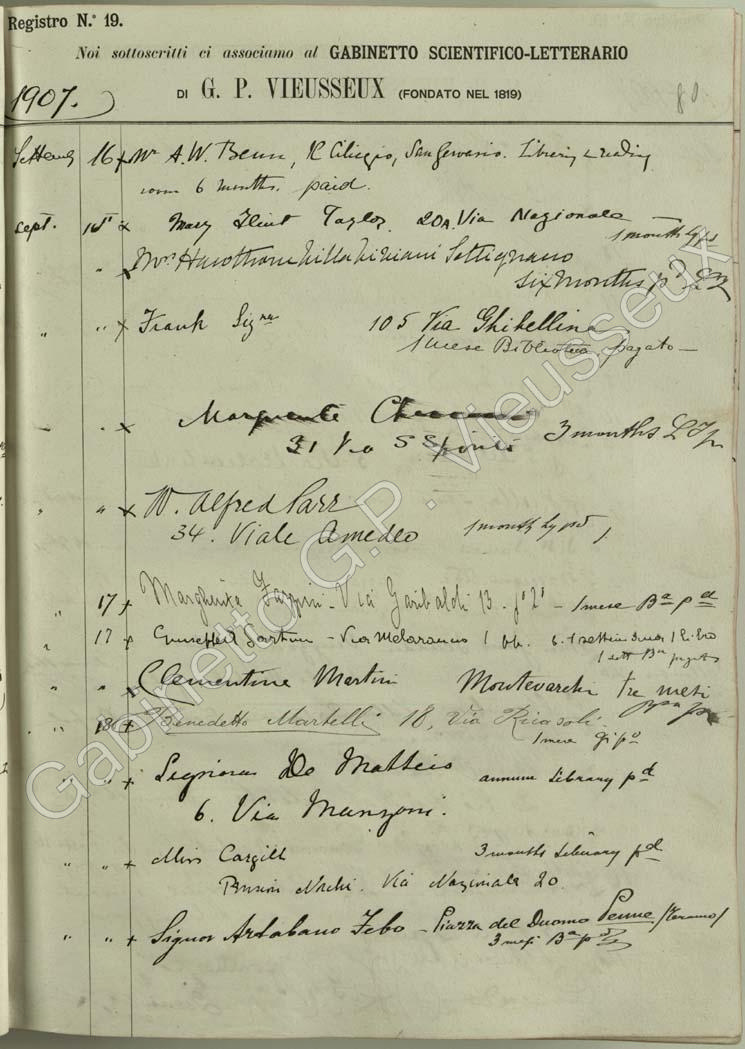 Registro N.° 19.
Noi sottoscritti ci associamo al GABINETTO SCIENTIFICO-LETTERARIO
1907.
DI G. P. VIEUSSEUX (FONDATO NEL 1819)
80
16 x Mr A. W. Benn, Il Ciliegio, San Gervasio. Library & reading
room 6 months. paid.
Sept. 16 x Mary Flint Taylor. 20A. Via Nazionale
1 month Ly pd
" x Mrs Hawthorne Villa Viviani Settignano
six months pd
" " x Frank Sigra 105 Via Ghibellina
1 mese Biblioteca pagato —
" x Marguerite
31 Via 3 months L
" " x W. Alfred Parr
34. Viale Amedeo 1 month Ly pd
" 17 x Margherita - Via Garibaldi 13. po 2o - 1 mese Ba pd
" 17 x Giuseppe Sartini - Via Melarancio 1
1 sett Ba pagato
" " x Clementine Martini Montevarchi tre mesi
" 18 x Benedetto Martelli 18, Via Ricasoli.
1 mese
" " x Signora De Matteis annum Library pd
6. Via Manzoni.
" " x Miss Cargill 3 months Library pd
Pension Via Nazionale 20.
" " x Signor Artabano Febo - Piazza del Duomo Penne (Teramo)
3 mesi Ba pd
Gabinetto G.P. Vieusseux